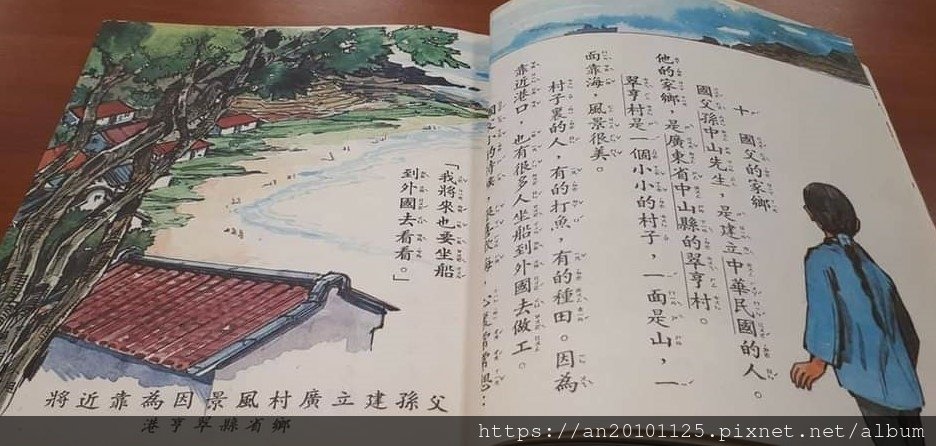 十 國父的家鄉
國父孫中山先生，是建立中華民國的人。
他的家鄉，是廣東省中山縣的翠亨村。
翠亨村是一個小小的村子，一面是山，一
面靠海，風景很美。
村子裏的人，有的打魚，有的種田。因為
靠近港口，也有很多人坐船到外國去做工。
的時候
「我將來也要坐船
到外國去看看。」
父孫建立廣村風景因為靠近將
鄉省縣翠亨港
https://an20101125.pixnet.net/album